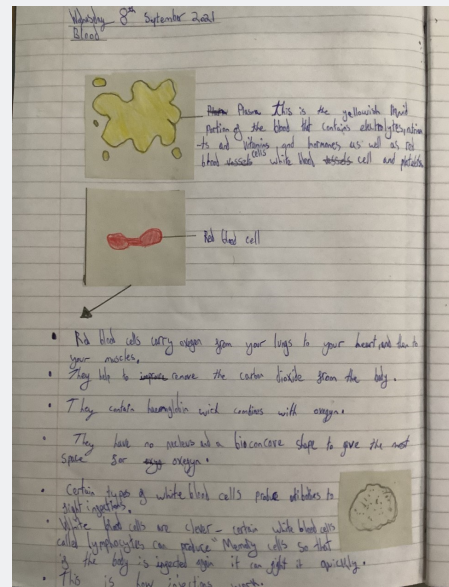 Wednesday 8th September 2021
Blood
Plasma This is the yellowish fluid
portion of the blood that contains electrolytes,
and vitamins and hormones as well as red
blood cells white blood cell and
Red blood cell
Red blood cells carry oxygen from your lungs to your heart, and then to
your muscles.
They help to remove the carbon dioxide from the body.
They contain haemoglobin wich combines with oxegyn.
They have no nucleus and a bioconcore shape to give the most
space for oxegyn.
Certain types of white blood cells
to
fight
White blood cells are clever - certain white blood cells
called lymphocytes can produce "Memory cells so that
if the body is again it can fight it quickly.
This is how